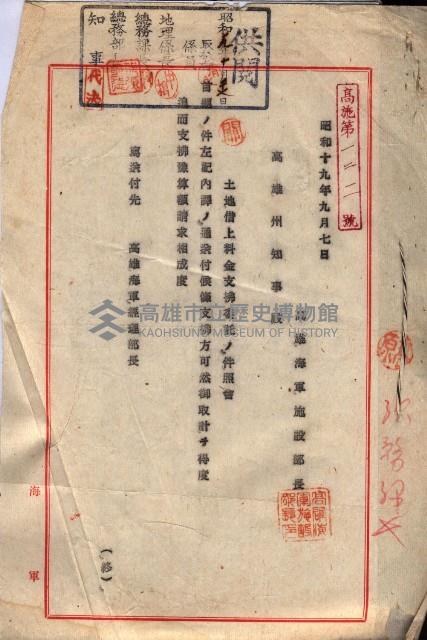 高施第一二二號
昭和十九年九月七日
高雄海軍施設部長
高雄州知事殿
土地借上料金支拂委託ノ件照會
首題ノ件左記內譯ノ通送付候條支拂方可然御取計ヲ得度
追而支拂豫算額請求相成度
送付先 高雄海軍經理部長
(終)
海軍
供閱
昭和
地理係長
係員
總務課
總務部
知事代決
高雄市立歷史博物館
KAOHSIUNG MUSEUM OF HISTORY